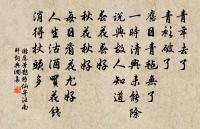 青春去了
青衫破了
舊日青氈無了
一時清興未能除
說與故人知道
春花春好
秋花秋好
每日看花尤好
人生沽酒買花錢
消得杖頭多少